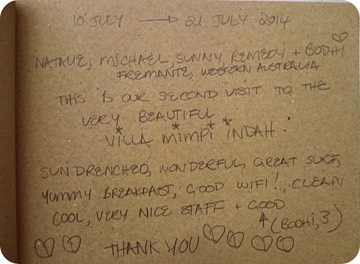 10 JULY → 21 JULY 2014
NATALIE, MICHAEL, SUNNY, REMEDY + BODHI
FREMANTLE, WESTERN AUSTRALIA
THIS IS OUR SECOND VISIT TO THE
VERY BEAUTIFUL
VILLA MIMPI INDAH.
SUNDRENCHED, WONDERFUL, GREAT SURF,
YUMMY BREAKFAST, GOOD WIFI!, CLEAN
COOL, VERY NICE STAFF + GOOD
(BODHI, 3)
THANK YOU